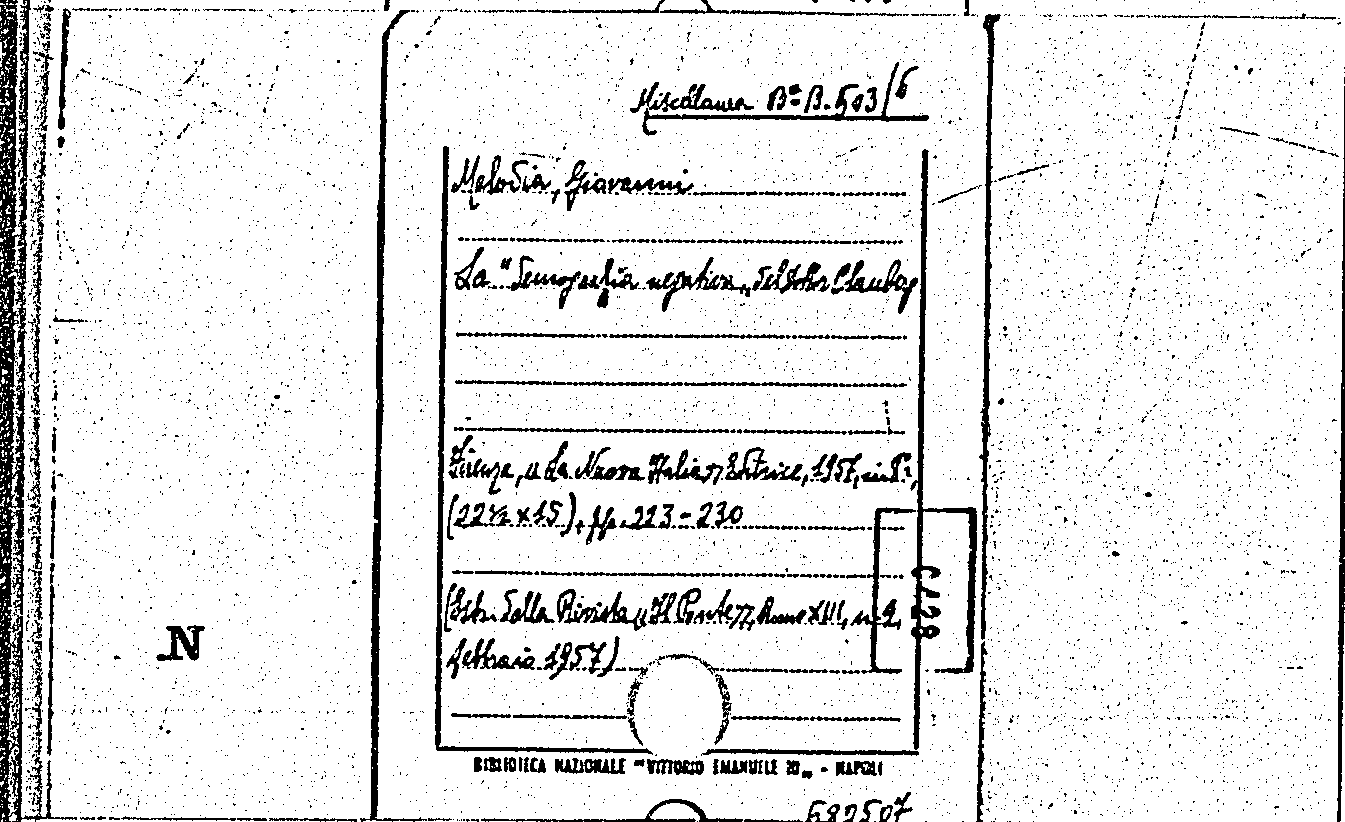 Miscellanea Bª B. 503/6
Melodia, Giovanni
La "Demografia negativa" del Dottor Clauberg
Firenze, "La Nuova Italia" Editrice, 1957, in 8º,
(22½ x 15), pp. 223-230
(Estr. dalla Rivista "Il Ponte", Anno XIII, n. 2,
febbraio 1957)
8279
N
BIBLIOTECA NAZIONALE "VITTORIO EMANUELE III" - NAPOLI
582507